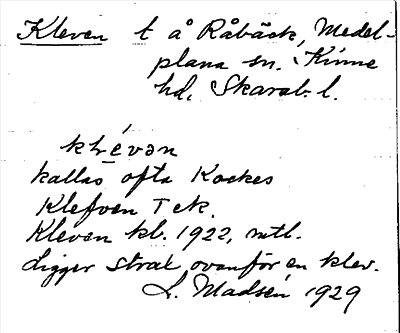 Kleven t å Råbäck, Medel-
plana sn. Kinne
hd. Skarab. l.
klévən
kallas ofta Kockes
Klefven T ek.
Kleven kb. 1922, mtl.
Ligger strax ovanför en klev.
L. Madsén 1929